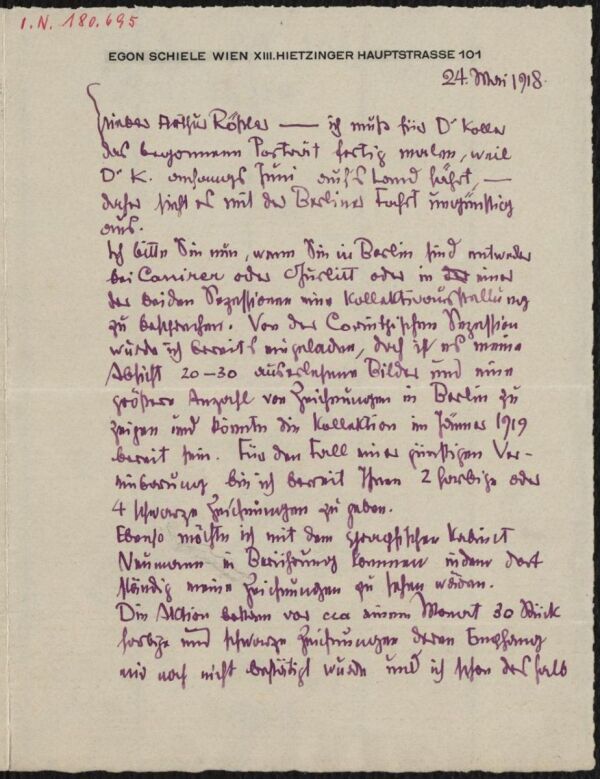 I.N. 180.695
EGON SCHIELE WIEN XIII. HIETZINGER HAUPTSTRASSE 101
24. Mai 1918.
Lieber Arthur Rößler — ich muß für Dr Koller
das begonnene Porträt fertig malen, weil
Dr K. anfangs Juni auf's Land fährt, —
daher sieht es mit der Berliner Fahrt ungünstig
aus.
Ich bitte Sie nun, wenn Sie in Berlin sind entweder
bei Cassirer oder Gurlitt oder in einer
der beiden Sezessionen eine Kollektivausstellung
zu besprechen. Von der Corinthischen Sezession
wurde ich bereits eingeladen, doch ist es meine
Absicht 20–30 auserlesene Bilder und eine
größere Anzahl von Zeichnungen in Berlin zu
zeigen und könnte die Kollektion im Jänner 1919
bereit sein. Für den Fall einer günstigen Ver-
einbarung bin ich bereit Ihnen 2 farbige oder
4 schwarze Zeichnungen zu geben.
Ebenso möchte ich mit dem graphischen Kabinet
Neumann in Berührung kommen indem dort
ständig meine Zeichnungen zu sehen wären.
Die Aktion bekam vor cca einem Monat 30 Stück
farbige und schwarze Zeichnungen deren Empfang
mir noch nicht bestätigt wurde und ich schon deshalb